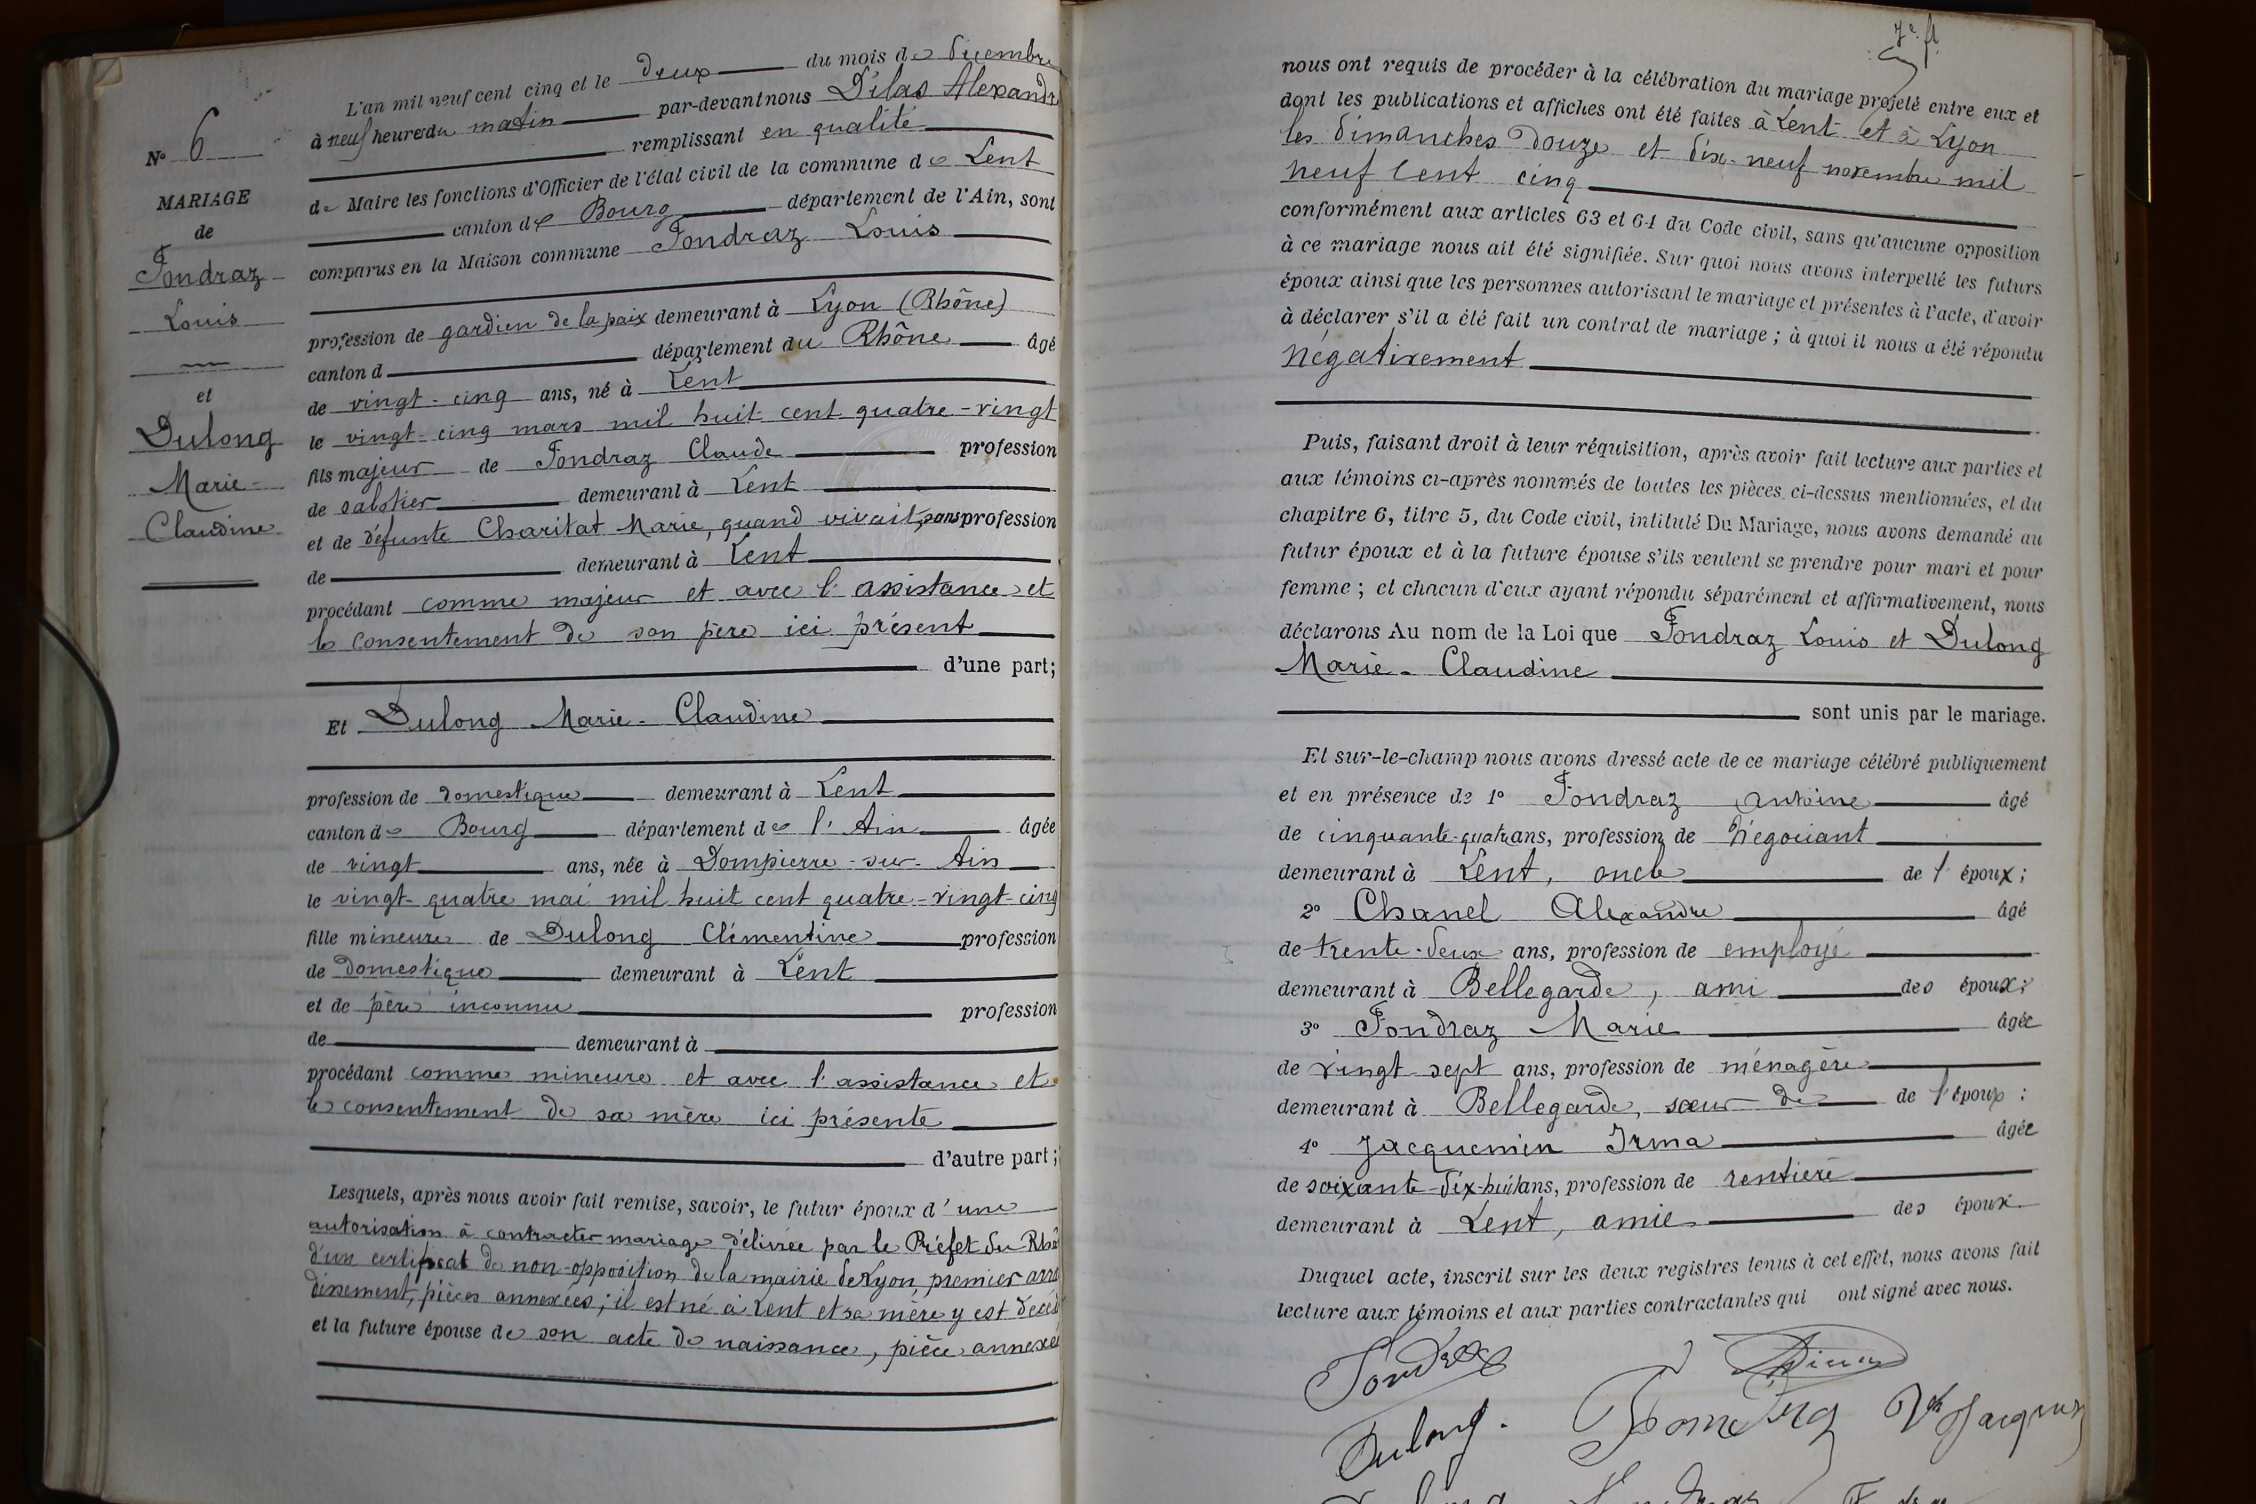 N° 6
MARIAGE
de
Fondraz
Louis
et
Dulong
Marie-
Claudine
L'an mil neuf cent cinq et le deux du mois de décembre
à neuf heures du matin par-devant nous Délas Alexandre
remplissant en qualité
de Maire les fonctions d'Officier de l'état civil de la commune de Lent
canton de Bourg département de l'Ain, sont
comparus en la Maison commune Fondraz Louis
profession de gardien de la paix demeurant à Lyon (Rhône)
canton d département du Rhône âgé
de vingt-cinq ans, né à Lent
le vingt-cinq mars mil huit cent quatre-vingt
fils majeur de Fondraz Claude profession
de sabotier demeurant à Lent
et de défunte Charitat Marie, quand vivait, sans profession
de demeurant à Lent
procédant comme majeur et avec l'assistance et
le consentement de son père ici présent
d'une part;
Et Dulong Marie-Claudine
profession de domestique demeurant à Lent
canton de Bourg département de l'Ain âgée
de vingt ans, née à Dompierre-sur-Ain
le vingt-quatre mai mil huit cent quatre-vingt-cinq
fille mineure de Dulong Clémentine profession
de domestique demeurant à Lent
et de père inconnu profession
de demeurant à
procédant comme mineure et avec l'assistance et
le consentement de sa mère ici présente
d'autre part;
Lesquels, après nous avoir fait remise, savoir, le futur époux d'une
autorisation à contracter mariage délivrée par le Préfet du Rhô
d'un certificat de non-opposition de la mairie de Lyon, premier arro
dissement, pièces annexées; il est né à Lent et sa mère y est décéd
et la future épouse de son acte de naissance, pièce annexée
7e ft
nous ont requis de procéder à la célébration du mariage projeté entre eux et
dont les publications et affiches ont été faites à Lent et à Lyon
les dimanches douze et dix-neuf novembre mil
neuf cent cinq
conformément aux articles 63 et 64 du Code civil, sans qu'aucune opposition
à ce mariage nous ait été signifiée. Sur quoi nous avons interpellé les futurs
époux ainsi que les personnes autorisant le mariage et présentes à l'acte, d'avoir
à déclarer s'il a été fait un contrat de mariage; à quoi il nous a été répondu
négativement
Puis, faisant droit à leur réquisition, après avoir fait lecture aux parties et
aux témoins ci-après nommés de toutes les pièces ci-dessus mentionnées, et du
chapitre 6, titre 5, du Code civil, intitulé Du Mariage, nous avons demandé au
futur époux et à la future épouse s'ils veulent se prendre pour mari et pour
femme; et chacun d'eux ayant répondu séparément et affirmativement, nous
déclarons Au nom de la Loi que Fondraz Louis et Dulong
Marie-Claudine
sont unis par le mariage.
Et sur-le-champ nous avons dressé acte de ce mariage célébré publiquement
et en présence de 1° Fondraz Antoine âgé
de cinquante-quatre ans, profession de négociant
demeurant à Lent, oncle de l'époux;
2° Chanel Alexandre âgé
de trente-deux ans, profession de employé
demeurant à Bellegarde, ami des époux;
3° Fondraz Marie âgée
de vingt sept ans, profession de ménagère
demeurant à Bellegarde, sœur de de l'époux:
4° Jacquemin Irma âgée
de soixante-dix-huit ans, profession de rentière
demeurant à Lent, amie des époux.
Duquel acte, inscrit sur les deux registres tenus à cet effet, nous avons fait
lecture aux témoins et aux parties contractantes qui ont signé avec nous.
Fondraz
Dulong.